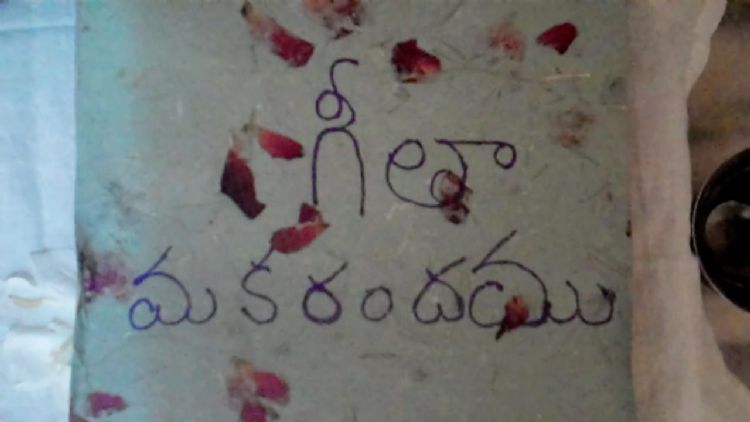 గీతా
మకరందము